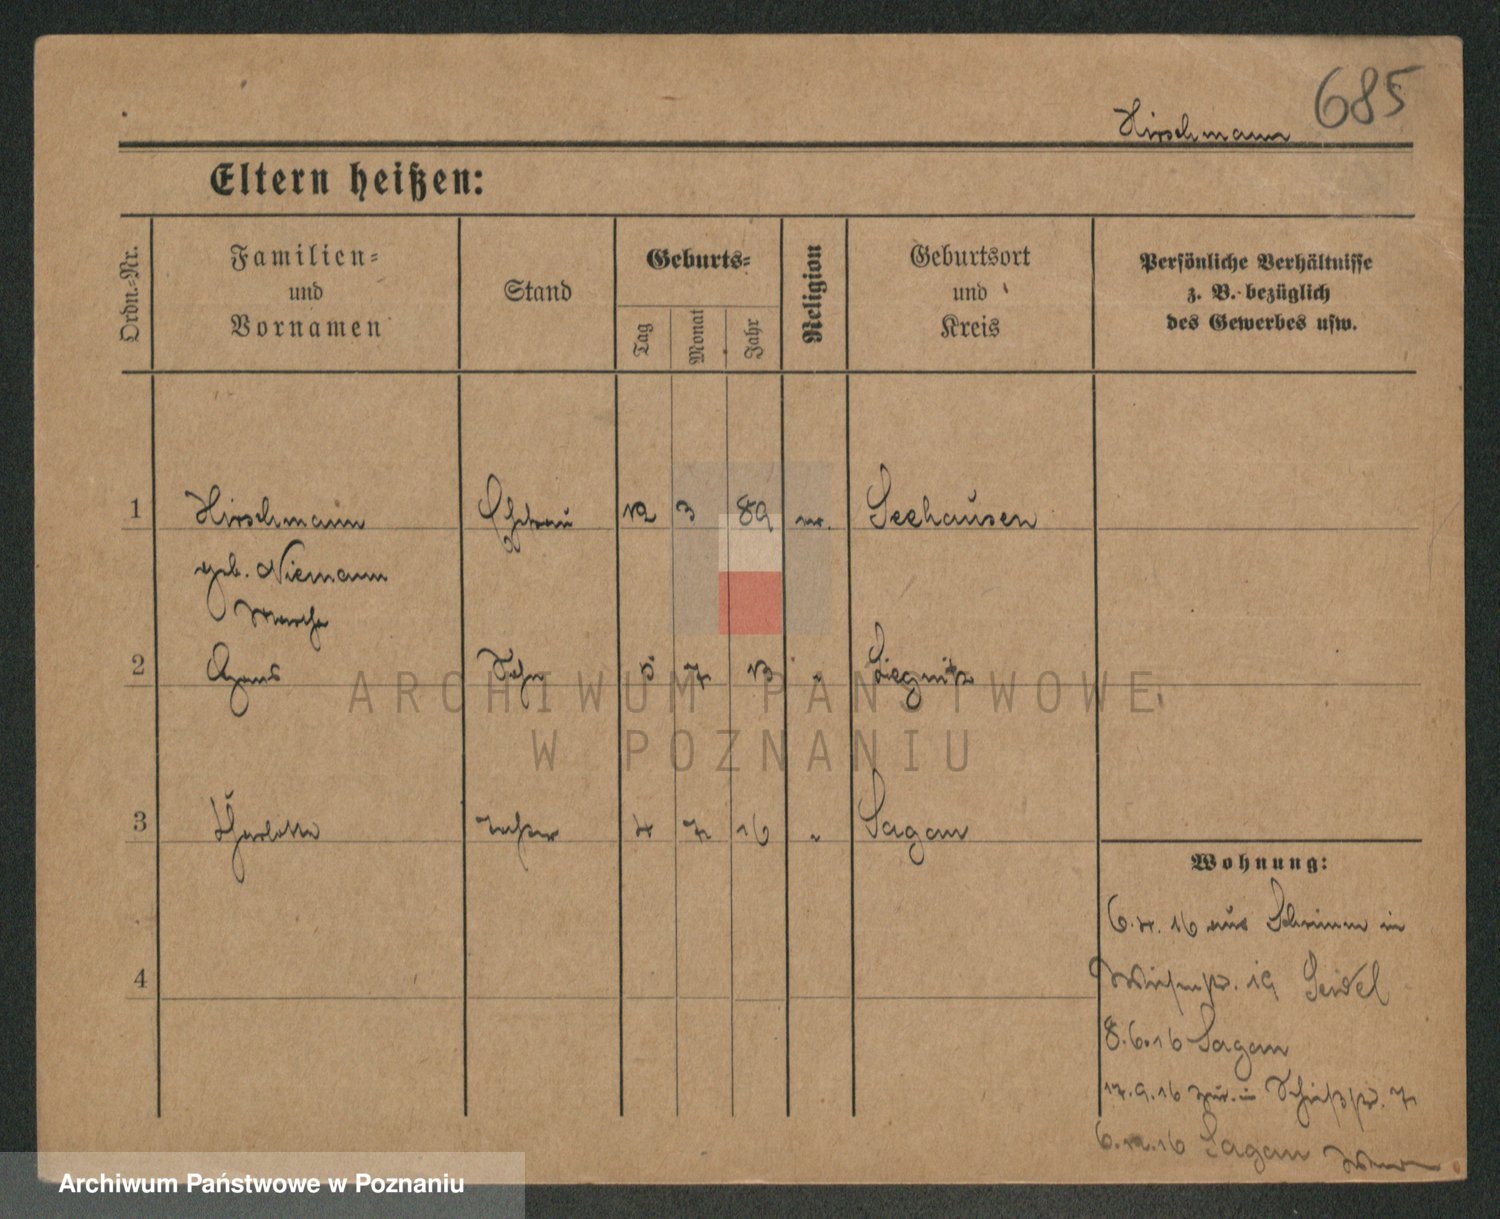 685
Hirschmann
Eltern heißen:
Ordn.-Nr.
Familien-
und
Vornamen
Stand
Geburts-
Tag
Monat
Jahr
Religion
Geburtsort
und
Kreis
Persönliche Verhältnisse
z. B. bezüglich
des Gewerbes usw.
1 Hirschmann Ehefrau 12 3 89 Seehausen
geb. Niemann
Martha
2 Sohn 5 7 13 " Liegnitz
3 Charlotte Tochter 4 7 16 " Sagan
Wohnung:
6.4.16 aus Schrimm in
19 Seidel
4
8.6.16 Sagan
17.9.16 zur. in 7
6.12.16 Sagan
ARCHIWUM PAŃSTWOWE
W POZNANIU
Archiwum Państwowe w Poznaniu